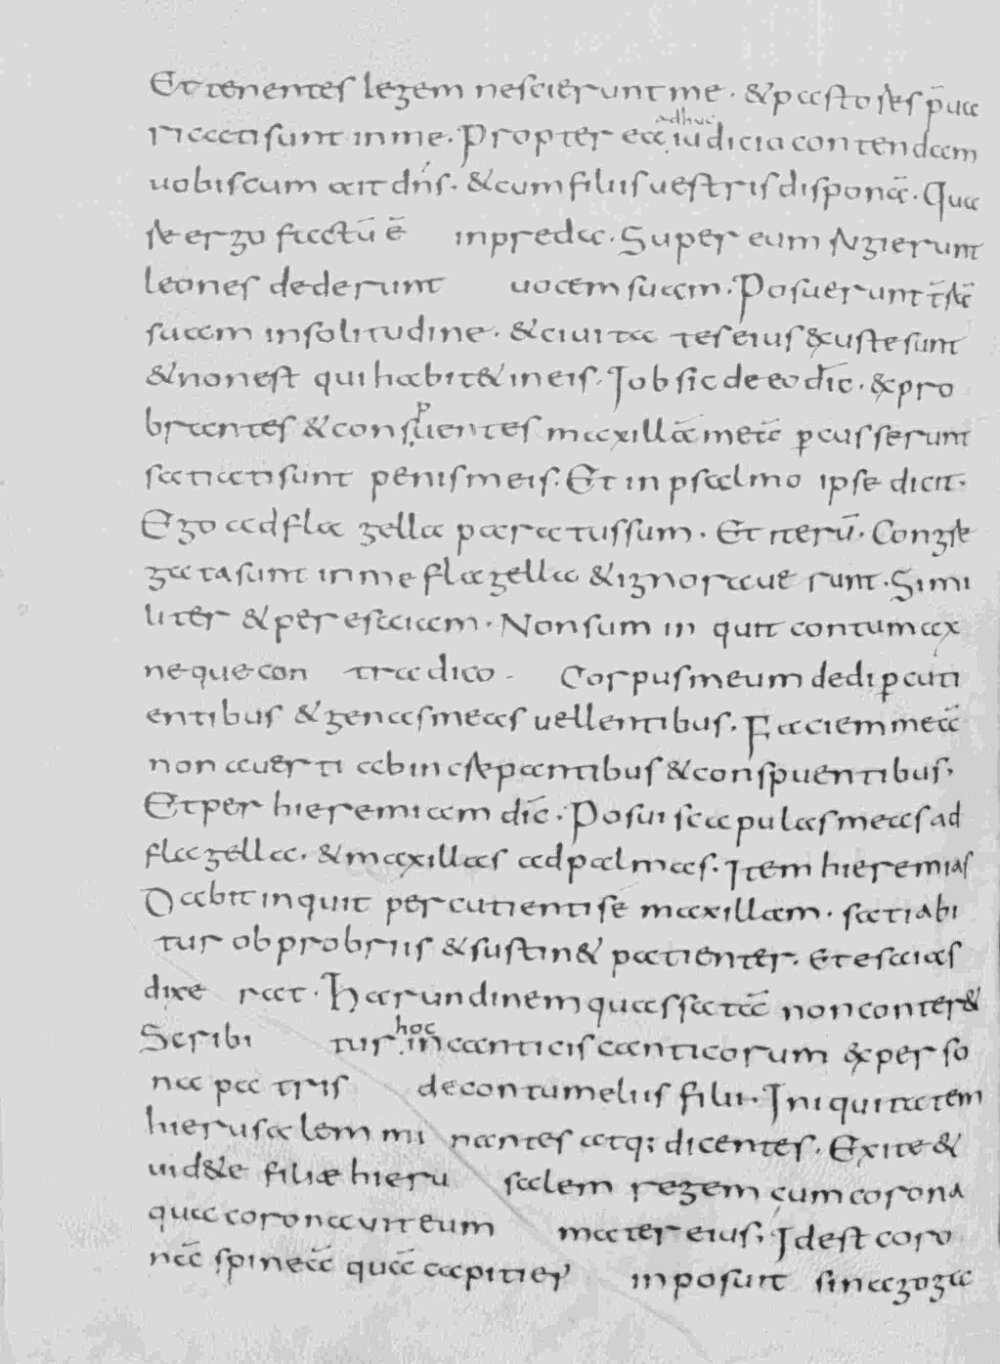 Et tenentes legem nescierunt me. & pastores p̄ua
ricati sunt in me. Propter ea adhuc iudicia contendam
uobiscum ait dn̄s. & cum filiis uestris disponā. Qua
re ergo factū ē in preda. Super eum rugierunt
leones dederunt uocem suam. Posuerunt t̄rā
suam in solitudine. & ciuita tes eius exuste sunt
& non est qui habit& in eis. Iob sic de eo dic̄. expro
brantes & conspuentes maxillā meā ꝑcusserunt
satiati sunt penis meis. Et in psalmo ipse dicit.
Ego ad fla gella paratus sum. Et iterū. Congre
gata sunt in me flagella & ignoraue runt. Simi
liter & per esaiam. Non sum in quit contumax
neque con tra dico. Corpus meum dedi ꝑcuti
entibus & genas meas uellentibus. Faciem meā
non auerti ab increpantibus & conspuentibus.
Et per hieremiam dic̄. Posui scapulas meas ad
flagella. & maxillas ad palmas. Item hieremias
Dabit inquit percutienti se maxillam. satiabi
tur obprobriis & sustin& patienter. Et esaias
dixe rat. Harundinem quassatā non conter&
Scribi tur hoc in canticis canticorum ex perso
na pa tris de contumeliis filii. Iniquitatem
hierusalem mi nantes atq; dicentes. Exite &
uid&e filiæ hieru salem regem cum corona
qua coronauit eum mater eius; Id est coro
nā spineā quā capiti ei' inposuit sinagoga